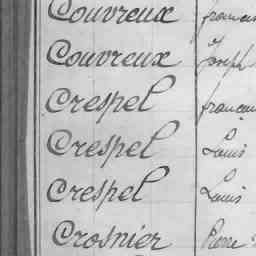 Couvreux
Couvreux Joseph
Crespel
Crespel Louis
Crespel Louis
Crosnier Pierre